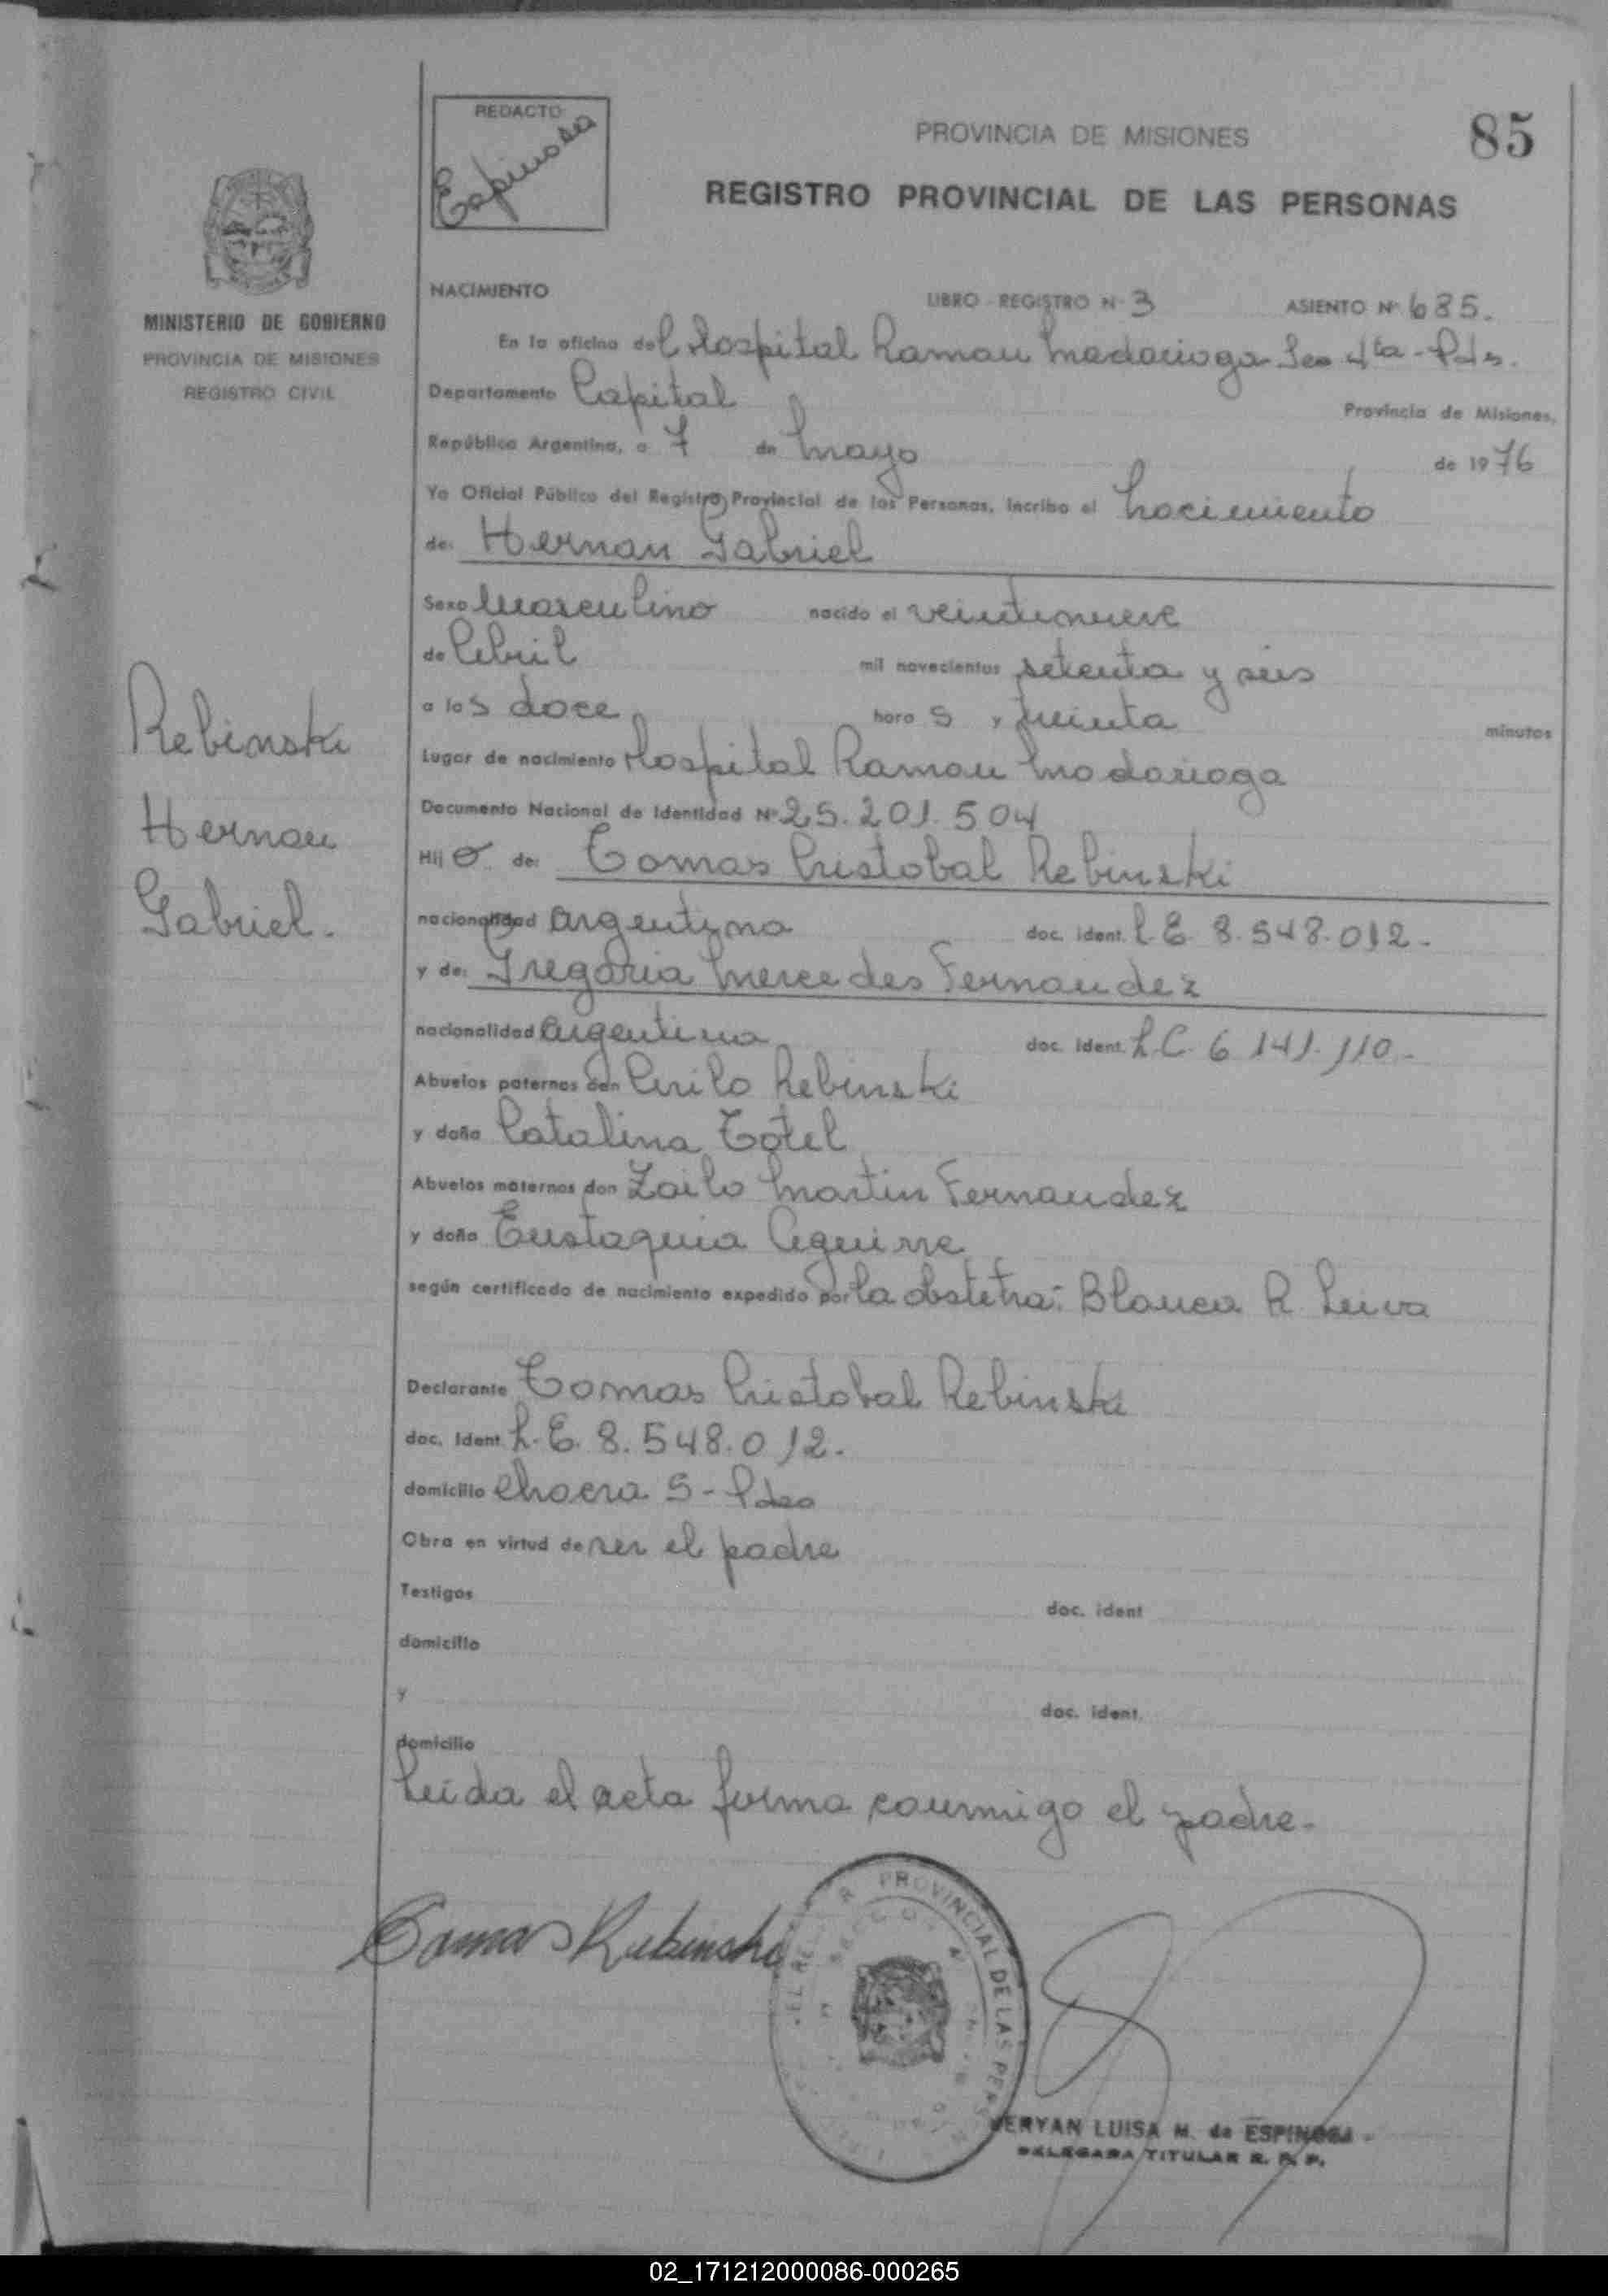 REDACTO
Espinosa
PROVINCIA DE MISIONES
85
REGISTRO PROVINCIAL DE LAS PERSONAS
MINISTERIO DE GOBIERNO
PROVINCIA DE MISIONES
REGISTRO CIVIL
NACIMIENTO LIBRO REGISTRO Nº 3 ASIENTO Nº 685.
En la oficina del Hospital Ramon Madariaga Sec 4ta - Pdas.
Departamento Capital Provincia de Misiones,
República Argentina, a 7 de Mayo de 1976
Yo Oficial Público del Registro Provincial de las Personas, incribo el nacimiento
de: Hernan Gabriel
Sexo Masculino nacido el veintinueve
de Abril mil novecientos setenta y seis
a las doce horas y treinta minutos
Lugar de nacimiento Hospital Ramon Madariaga
Documento Nacional de Identidad Nº 25.201.504
Hijo de: Tomas Cristobal Rebinski
nacionalidad argentina doc. ident. L.E. 8.548.012.-
y de: Gregoria Mercedes Fernandez
nacionalidad argentina doc. ident. L.C. 6.141.110.-
Abuelos paternos don Cirilo Rebinski
y doña Catalina Totel
Abuelos maternos don Zoilo Martin Fernandez
y doña Eustaquia Aguirre
según certificado de nacimiento expedido por la obstetra: Blanca R. Leiva
Declarante Tomas Cristobal Rebinski
doc. ident. L.E. 8.548.012.
domicilio chacra 5 - Pdas
Obra en virtud de ser el padre
Testigos doc. ident
domicilio
y doc. ident.
domicilio
Leida el acta firma conmigo el padre.-
Rebinski
Hernan
Gabriel.
Tomas Rebinski
PROVINCIAL DE LAS PERS
LUISA M. de ESPINOSA
DELEGADA TITULAR R. P. P.
02_171212000086-000265